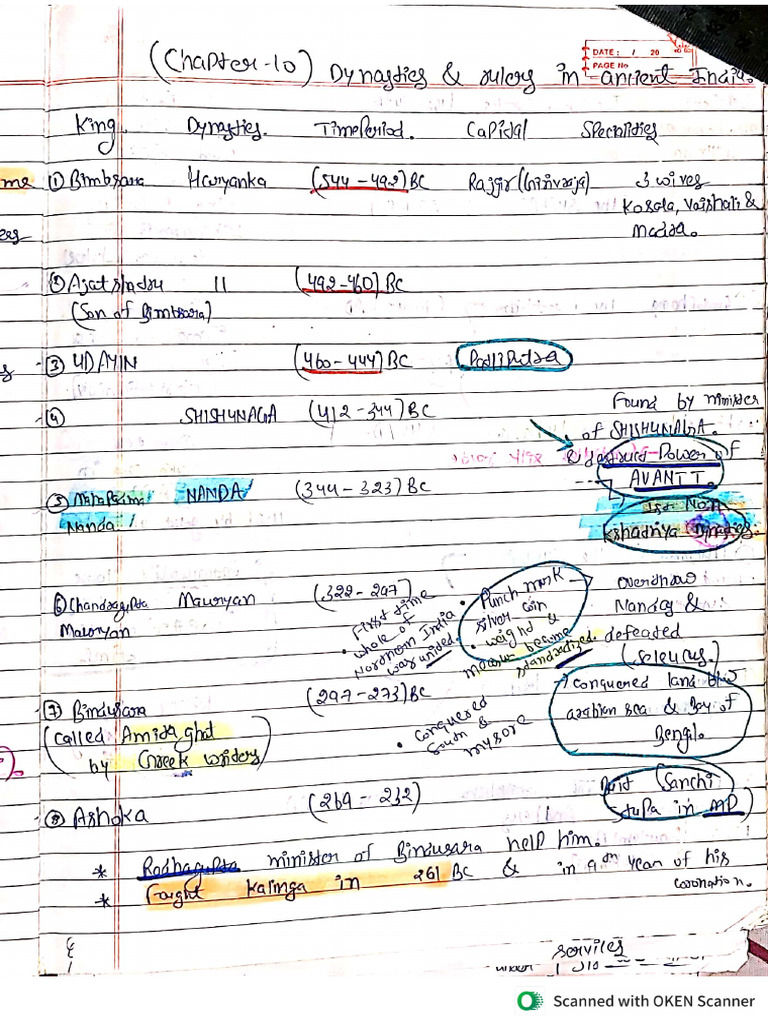 DATE: / 20
PAGE No
(Chapter-10) Dynasties & rulers in ancient India.
King. Dynasties. Time Period. Capital Specialities
me ① Bimbsara Haryanka (544-492) BC Rajgir (Girivraja) 3 wives
Kosala, Vaishali &
Madra.
② Ajatshatru 11 (492-460) BC
(Son of Bimbsara)
③ UDAYIN (460-444) BC Patliputra
④ SHISHUNAGA (412-344) BC Found by minister
of SHISHUNAGA.
& destroyed Power of
AVANTI.
⑤ Mahapadma NANDA (344-323) BC 1st Non
Nanda Kshatriya Dynasties.
⑥ Chandragupta Mauryan (322-297) Punch mark overthrow
Mauryan silver coin Nandas &
• First time whole of Northern India was unified.
• weight & measure become standardized. defeated
(Seleucus.)
⑦ Bindusara (297-273) BC → conquered land b/w
(called Amitraghat • Conquered arabian sea & Bay of
by Greek writers) South & mysore Bengl.
⑧ Ashoka (269-232) Built (Sanchi
stupa in MP)
* Radhagupta minister of Bindusara help him.
* Faught Kalinga in 261 BC & in 9th year of his
coronation.
services
Scanned with OKEN Scanner